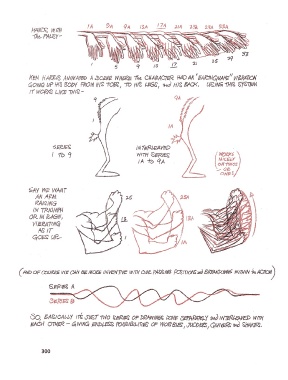 HANDS WITH
THE PALSY -
1A 5A 9A 13A 17A 21A 25A 29A 33A
1 5 9 13 17 21 25 29 33
KEN HARRIS ANIMATED A SCENE WHERE THE CHARACTER HAD AN "EARTHQUAKE" VIBRATION
GOING UP HIS BODY FROM HIS TOES, TO HIS LEGS, AND HIS BACK. USING THIS SYSTEM
IT WORKS LIKE THIS -
9
1
9A
1A
SERIES
1 TO 9
INTERLEAVED
WITH SERIES
1A TO 9A
WORKS
NICELY
ON TWOS
OR
ONES
SAY WE WANT
AN ARM
RAISING
IN TRIUMPH
OR IN RAGE,
VIBRATING
AS IT
GOES UP.
25
13
1
25A
13A
(AND OF COURSE WE CAN BE MORE INVENTIVE WITH OUR PASSING POSITIONS AND BREAKDOWNS WITHIN THE ACTION)
SERIES A
SERIES B
SO, BASICALLY IT'S JUST TWO SERIES OF DRAWINGS DONE SEPARATELY AND INTERLEAVED WITH
EACH OTHER - GIVING ENDLESS POSSIBILITIES OF WOBBLES, JUDDERS, QUIVERS AND SHAKES.
300